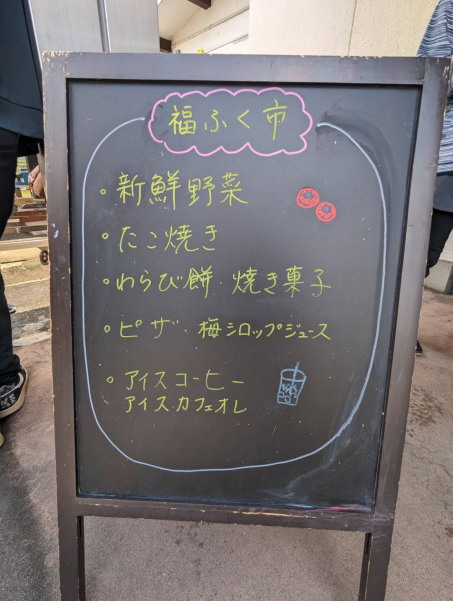 福ふく市
・新鮮野菜
・たこ焼き
・わらび餅・焼き菓子
・ピザ・梅シロップジュース
・アイスコーヒー
アイスカフェオレ